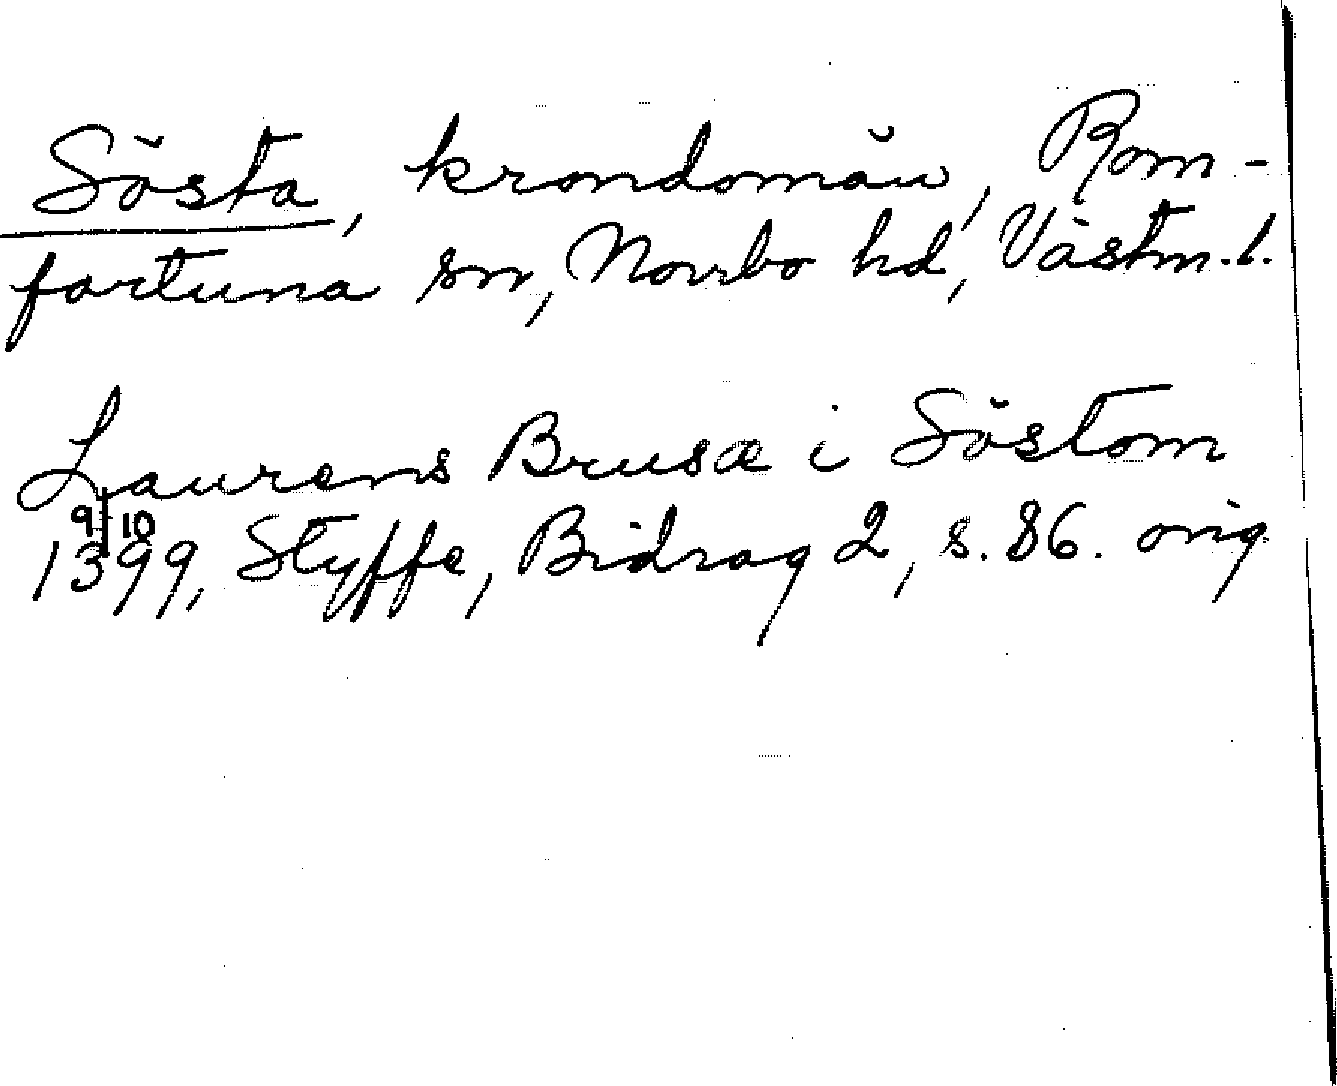 Sösta, krondomän, Rom-
fartuna sn, Norrbo hd, Västm.l.
Laurens Brusæ i Söstom
9/10
1399, Styffe, Bidrag 2, s. 86. orig.